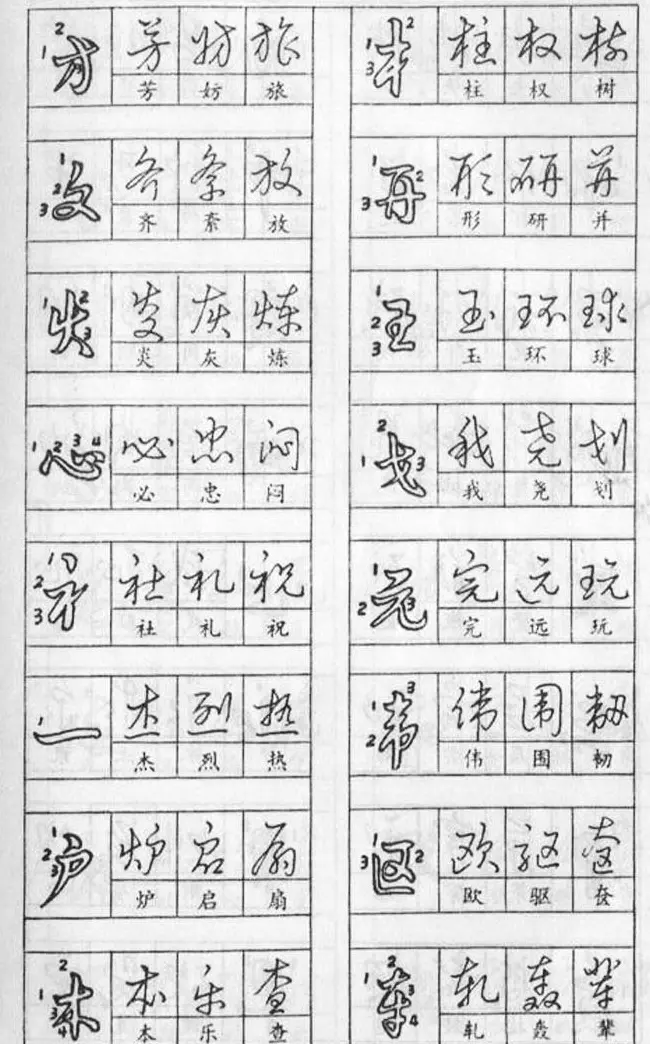 方 芳 妨 旅
芳 妨 旅
木 柱 权 树
柱 权 树
文 齐 紊 放
齐 紊 放
开 形 研 并
形 研 并
火 炎 灰 炼
炎 灰 炼
王 玉 环 球
玉 环 球
心 必 忠 闷
必 忠 闷
戈 我 尧 划
我 尧 划
礻 社 礼 祝
社 礼 祝
元 完 远 玩
完 远 玩
一 杰 烈 热
杰 烈 热
韦 伟 围 韧
伟 围 韧
户 炉 启 扇
炉 启 扇
区 欧 驱 奁
欧 驱 奁
木 本 乐 查
本 乐 查
车 轧 轰 辈
轧 轰 辈